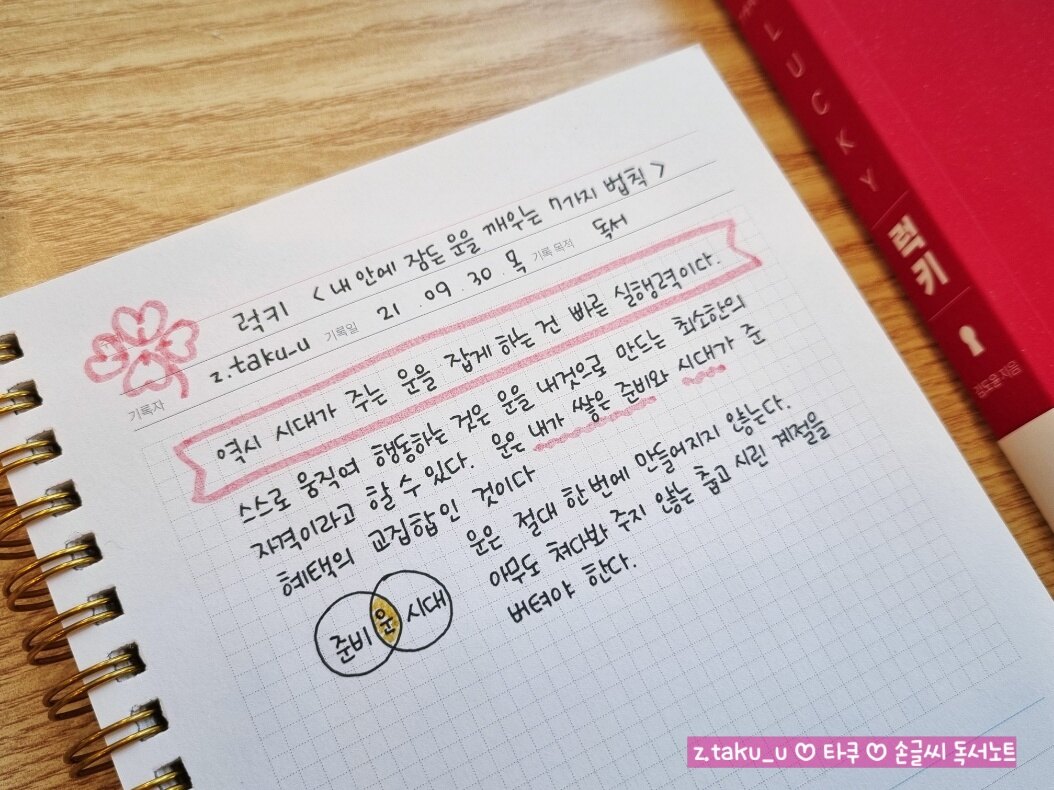 럭키 <내 안에 잠든 운을 깨우는 7가지 법칙>
기록자 z.taku_u 기록일 21 .09 30.목 기록 목적 독서
역시 시대가 주는 운을 잡게 하는 건 빠른 실행력이다.
스스로 움직여 행동하는 것은 운을 내것으로 만드는 최소한의
자격이라고 할 수 있다. 운은 내가 쌓은 준비와 시대가 준
혜택의 교집합인 것이다
운은 절대 한번에 만들어지지 않는다.
아무도 쳐다봐 주지 않는 춥고 시린 계절을
버텨야 한다.
준비 운 시대
LUCKY
럭키
김도윤 지음
z.taku_u ♡ 타쿠 ♡ 손글씨 독서노트